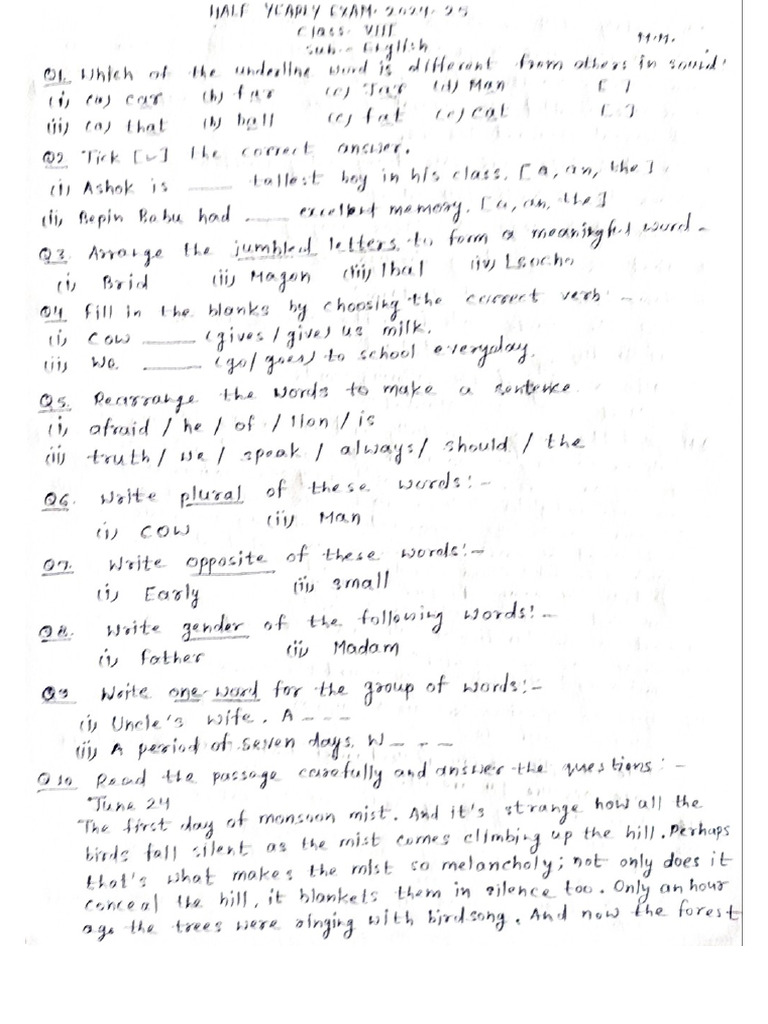 HALF YEARLY EXAM. 2024-25
Class- VIII
Sub.- English
M.M.
Q1. Which of the underline word is different from others in sound:
(i) (a) car (b) far (c) Jar (d) Man [ ]
(ii) (a) that (b) ball (c) fat (c) cat [ ]
Q2 Tick [✓] the correct answer.
(i) Ashok is ____ tallest boy in his class. [a, an, the]
(ii) Bepin Babu had ____ excellent memory. [a, an, the]
Q3. Arrange the jumbled letters to form a meaningful word -
(i) Brid (ii) Magon (iii) lbal (iv) Lsocho
Q4. Fill in the blanks by choosing the correct verb: -
(i) Cow _____ (gives / give) us milk.
(ii) We _____ (go/ goes) to school everyday.
Q5. Rearrange the words to make a sentence
(i) afraid / he / of / lion / is
(ii) truth / we / speak / always / should / the
Q6. Write plural of these words: -
(i) COW (ii) Man
Q7. Write opposite of these words: -
(i) Early (ii) Small
Q8. Write gender of the following words: -
(i) father (ii) Madam
Q9 Write one word for the group of words: -
(i) Uncle's wife. A _ _ _
(ii) A period of seven days. W _ _ _
Q10 Read the passage carefully and answer the questions: -
June 24
The first day of monsoon mist. And it's strange how all the
birds fall silent as the mist comes climbing up the hill. Perhaps
that's what makes the mist so melancholy; not only does it
conceal the hill, it blankets them in silence too. Only an hour
ago the trees were ringing with birdsong. And now the forest